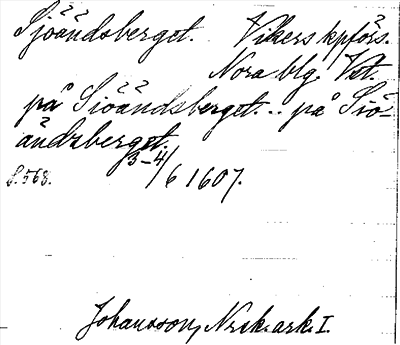 Sjöändsberget. Vikers kpförs.
Nora blg. Vst.
på Siöändsberget... på Siö-
ändzberget.
s. 568. 3-4/6 1607.
Johansson, Nrsk. ark. I.